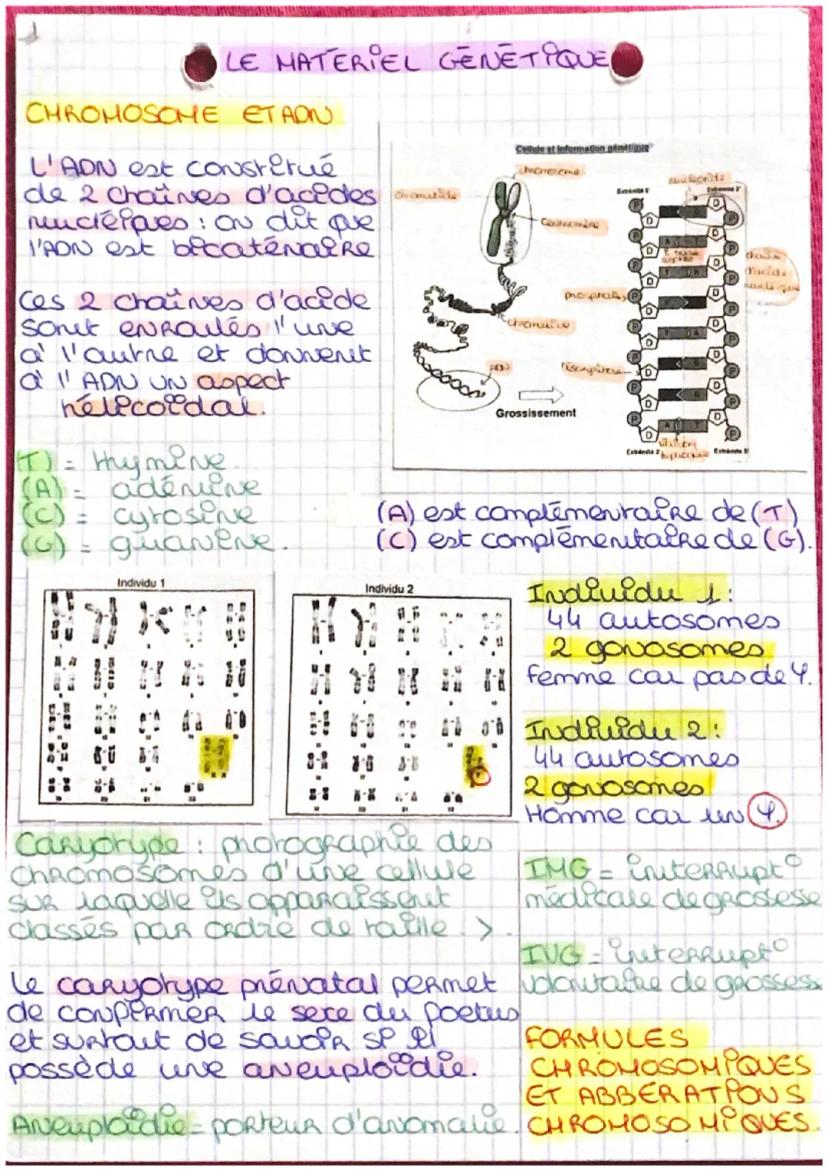 1
LE MATERIEL GÉNÉTIQUE
CHROMOSOME ET ADN
L'ADN est constitué
de 2 chaînes d'acides
nucléiques : on dit que
l'ADN est bicaténaire
Ces 2 chaînes d'acide
sont enroulés l'une
à l'autre et donnent
à l'ADN un aspect
hélicoïdal.
Cellule et information génétique
chromosome
chromatide
Centromère
chromatine
ADN
Grossissement
Extrémité 5'
Extrémité 3'
nucléotide
phosphate
chaîne
d'acide
nucléique
Extrémité 3'
Extrémité 5'
(T) = thymine
(A) = adénine
(C) = cytosine
(G) = guanine.
(A) est complémentaire de (T)
(C) est complémentaire de (G).
Individu 1
Individu 2
Individu 1 :
44 autosomes
2 gonosomes
femme car pas de Y.
Individu 2 :
44 autosomes
2 gonosomes
Homme car un Y.
Caryotype : photographie des
chromosomes d'une cellule
sur laquelle ils apparaissent
classés par ordre de taille >.
Le caryotype prénatal permet
de confirmer le sexe du foetus
et surtout de savoir si il
possède une aneuploïdie.
Aneuploïdie = porteur d'anomalie.
IMG = interrupt°
médicale de grossesse
IVG = interrupt°
volontaire de grossess
FORMULES
CHROMOSOMIQUES
ET ABBÉRATIONS
CHROMOSOMIQUES